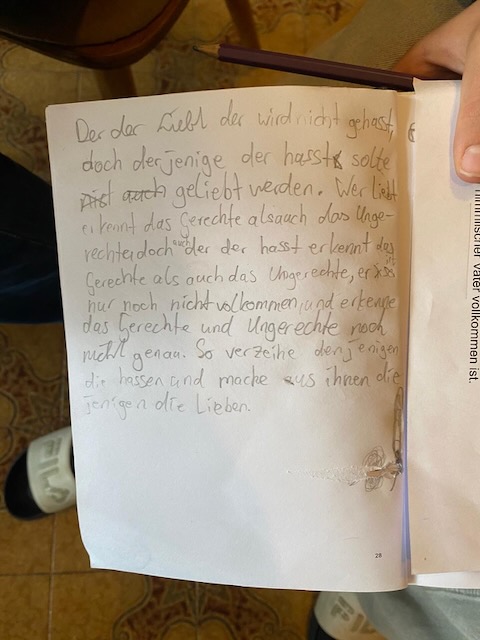 Der der Liebt der wird nicht gehasst,
doch derjenige der hasst solte
nist auch geliebt werden. Wer liebt
erkennt das Gerechte alsauch das Unge-
rechte, doch auch der der hasst erkennt das
Gerechte als auch das Ungerechte, er ist
nur noch nicht volkommen, und erkenne
das Gerechte und Ungerechte noch
nicht genau. So verzeihe denjenigen
die hassen und mache aus ihnen die
jenigen die Lieben.
28
himmlischer Vater vollkommen ist.